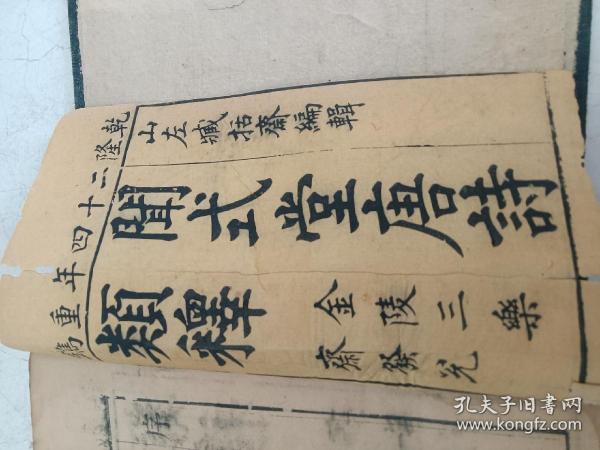 乾隆二十四年重鐫
山左臧括齋編輯
聞式堂唐詩
類釋
金陵三樂
齋發兌
序
孔夫子旧书网
www.kongfz.com